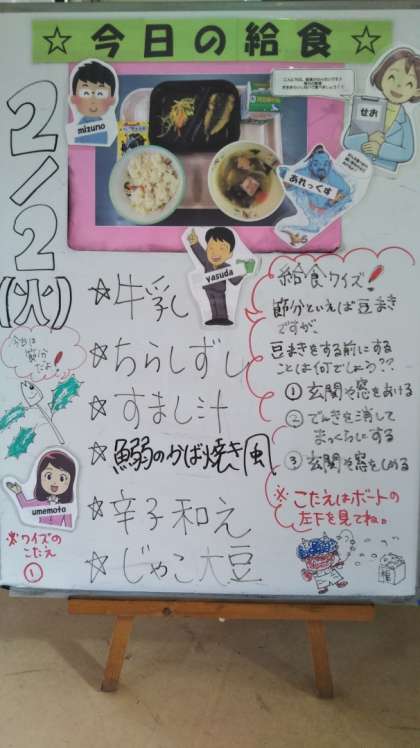 ☆今日の給食☆
2/2
(火)
mizuno
せお
あれっくす
yasuda
☆牛乳
☆ちらしずし
☆すまし汁
☆鰯のかば焼き風
☆辛子和え
☆じゃこ大豆
今日は
節分
だよ!
umemoto
※クイズの
こたえ
①
給食クイズ!
節分といえば豆まき
ですが、
豆まきをする前にする
ことは何でしょう??
①玄関や窓をあける
②でんきを消して
まっくらにする
③玄関や窓をしめる
※こたえはボードの
左下を見てね。